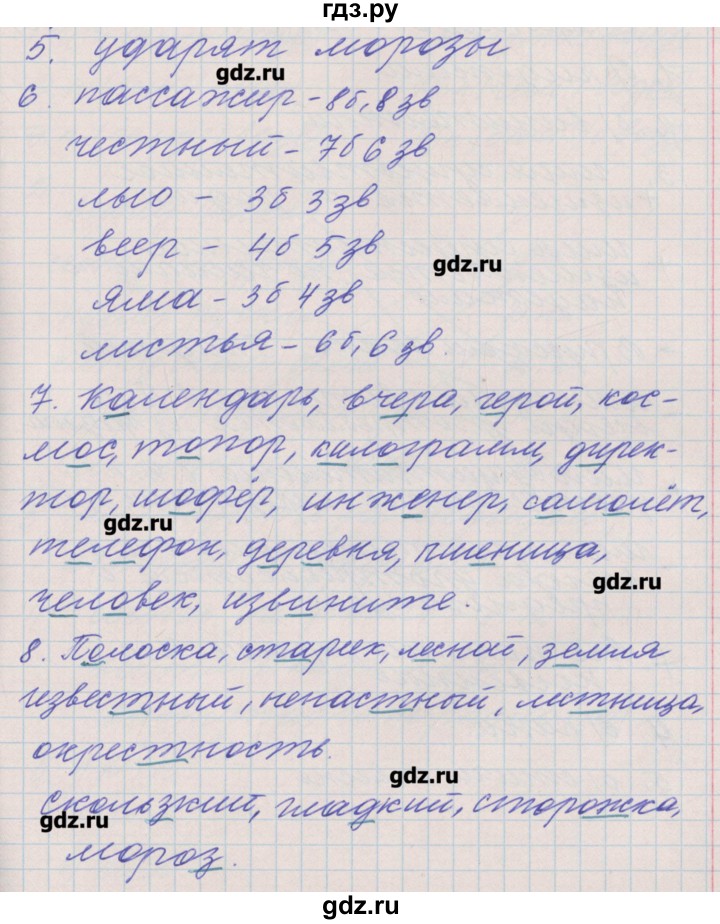 гдз.ру
5. ударят морозы
gdz.ru
6 пассажир - 8б, 8 зв
честный - 7б 6 зв
лью - 3б 3 зв
веер - 4б 5 зв
gdz.ru
яма - 3б 4 зв
листья - 6б, 6 зв.
7. Календарь, вчера, герой, кос-
мос, топор, килограмм, дирек-
тор, шофёр, инженер, самолёт,
gdz.ru
телефон, деревня, пшеница,
gdz.ru
человек, извините.
8. Полоска, старик, лесной, земля
известный, ненастный, лестница,
окрестность.
gdz.ru
скользкий, гладкий, сторожка,
gdz.ru
мороз.
gdz.ru